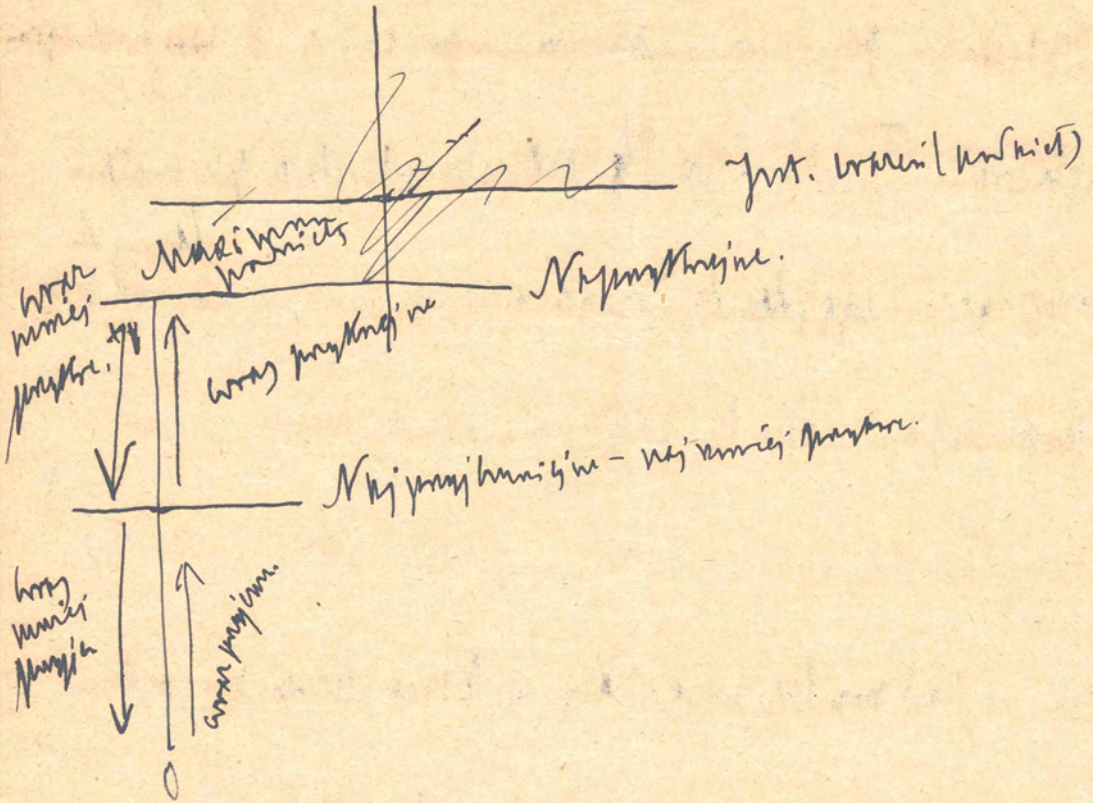 Int. wrażeń (podniet)
Maximum
podniety
Najprzykrzejsze.
coraz
mniej
przykre.
coraz przykrzejsze
Najprzyjemniejsze – najmniej przykre.
coraz
mniej
przyje
coraz przyjem.
0